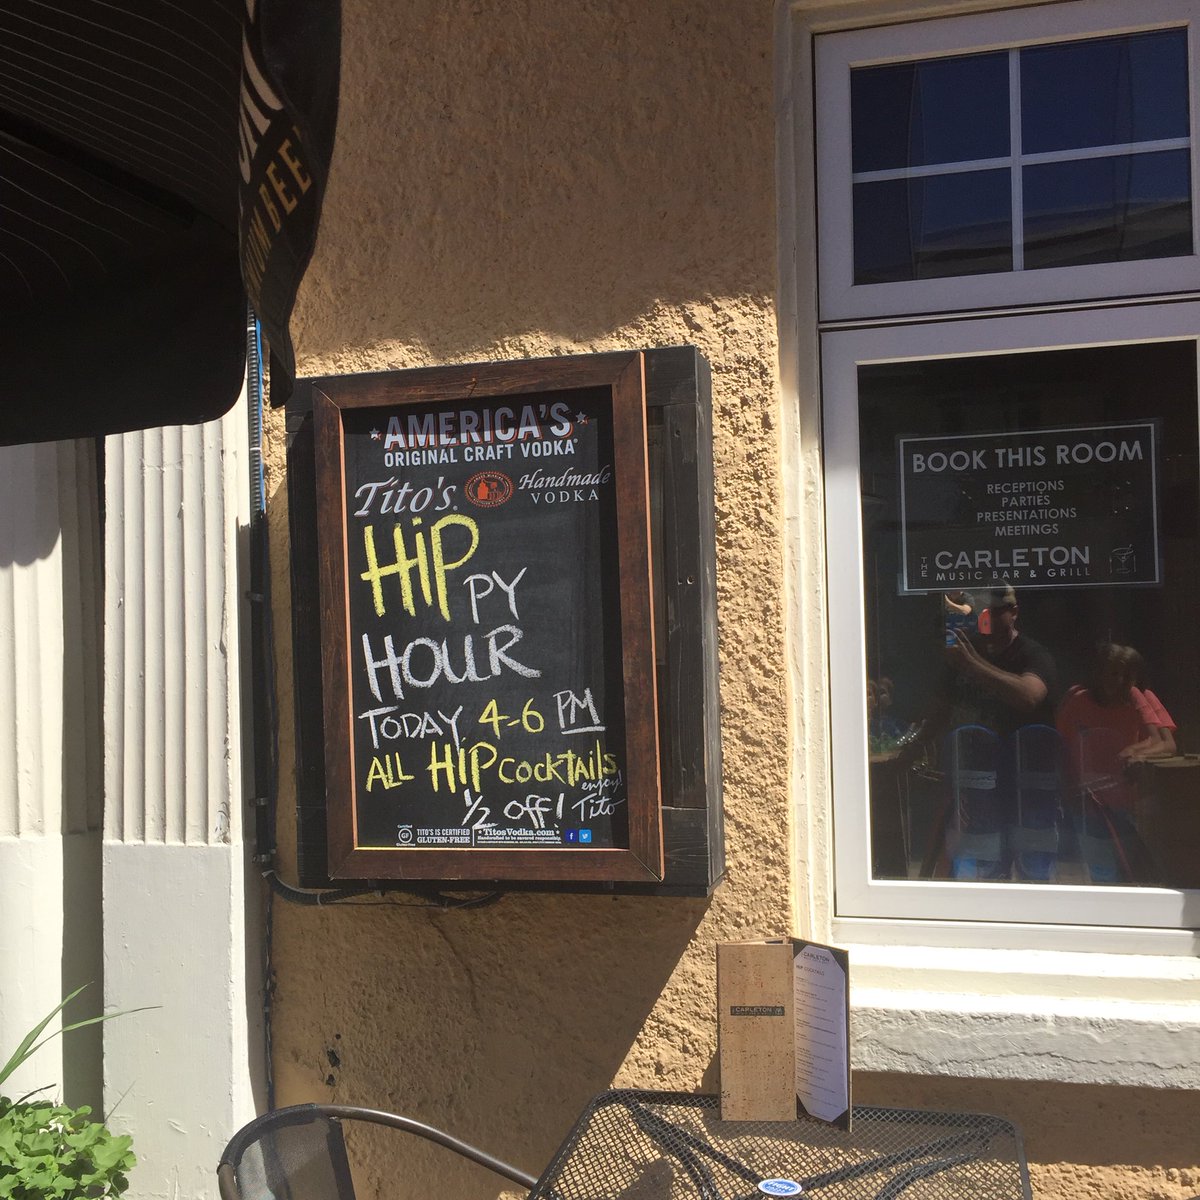 AMERICA'S
ORIGINAL CRAFT VODKA
Tito's Handmade
VODKA
HiP
PY
HOUR
TODAY 4-6 PM
ALL HiP COCKTAILS
enjoy!
1/2 OFF! Tito
Certified
GF
Gluten-Free
TITO'S IS CERTIFIED
GLUTEN-FREE
TitosVodka.com
BOOK THIS ROOM
RECEPTIONS
PARTIES
PRESENTATIONS
MEETINGS
THE CARLETON
MUSIC BAR & GRILL
CARLETON
CARLETON
HIP COCKTAILS